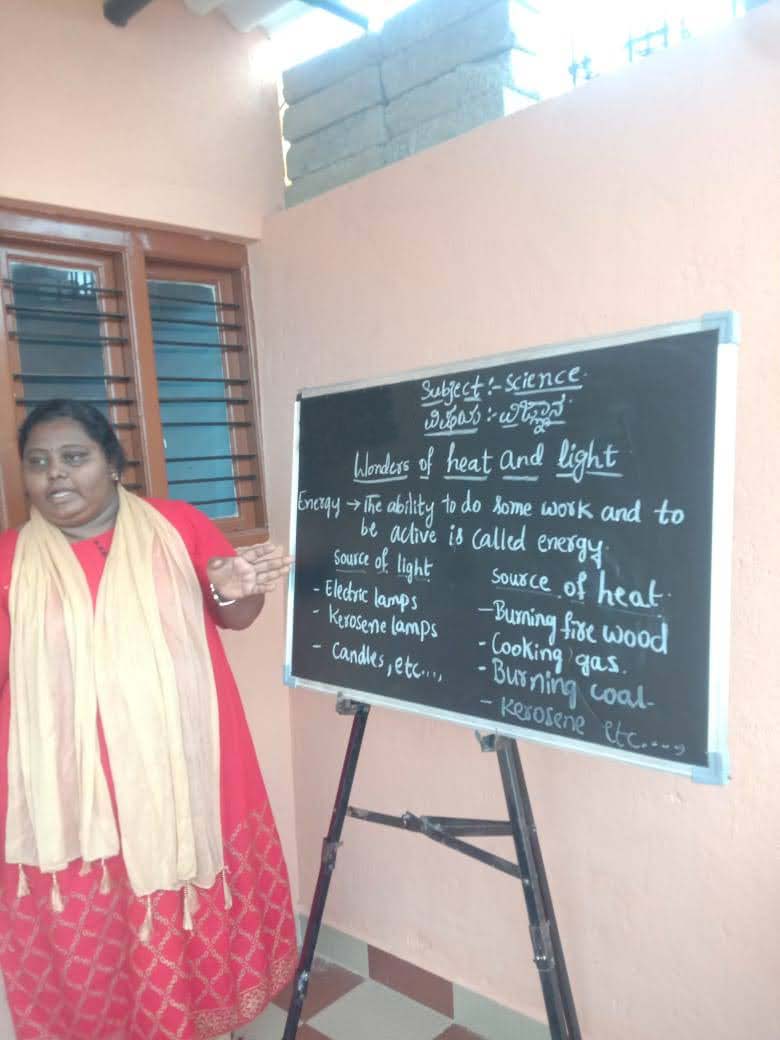 Subject :- Science
ವಿಷಯ :- ವಿಜ್ಞಾನ
Wonders of heat and light
Energy → The ability to do some work and to
be active is called energy.
Source of light
- Electric lamps
- Kerosene lamps
- Candles, etc....,
Source of heat
- Burning fire wood
- Cooking gas.
- Burning coal.
- Kerosene etc....,